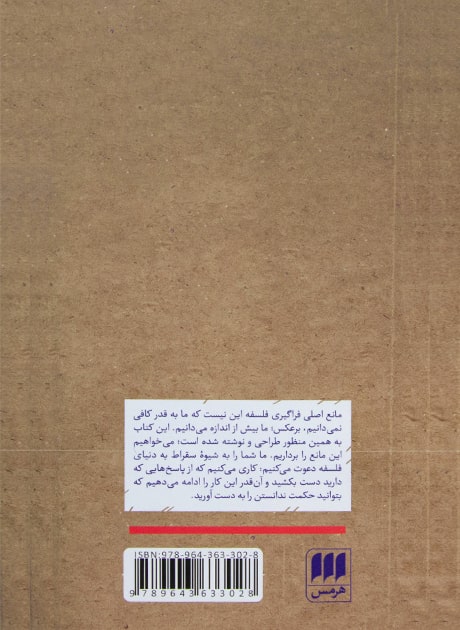 مانع اصلی فراگیری فلسفه این نیست که ما به قدر کافی
نمی‌دانیم، برعکس؛ ما بیش از اندازه می‌دانیم. این کتاب
به همین منظور طراحی و نوشته شده است؛ می‌خواهیم
این مانع را برداریم. ما شما را به شیوۀ سقراط به دنیای
فلسفه دعوت می‌کنیم؛ کاری می‌کنیم که از پاسخ‌هایی که
دارید دست بکشید و آن‌قدر این کار را ادامه می‌دهیم که
بتوانید حکمت ندانستن را به دست آورید.
ISBN: 978-964-363-302-8
9 789643 633028
هرمس